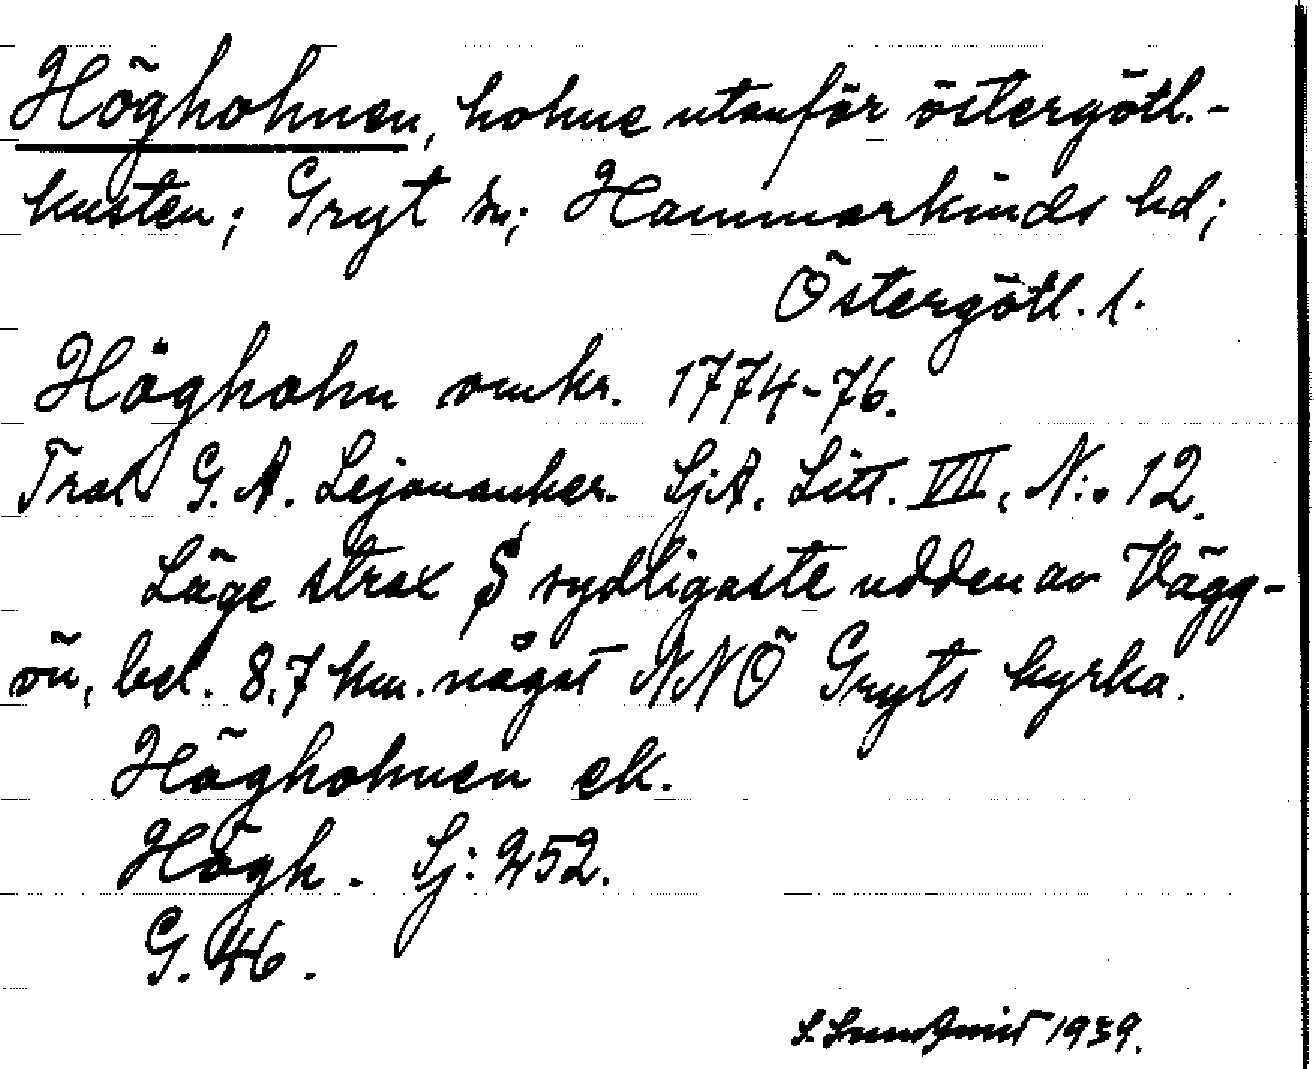 Höghohnen, hohne utanför östergötl.-
kusten; Gryt sn; Hammarkinds hd;
Östergötl. l.
Höghohn omkr. 1774-76.
Trol. G. A. Lejonanker. SjA. Litt. VII, N:o 12.
Läge strax S sydligaste udden av Vägg-
ön, bel. 8,7 km. något NNÖ Gryts kyrka.
Höghohnen ek.
Högh. Sj: 252.
G. 46.
S. Sundqvist 1939.